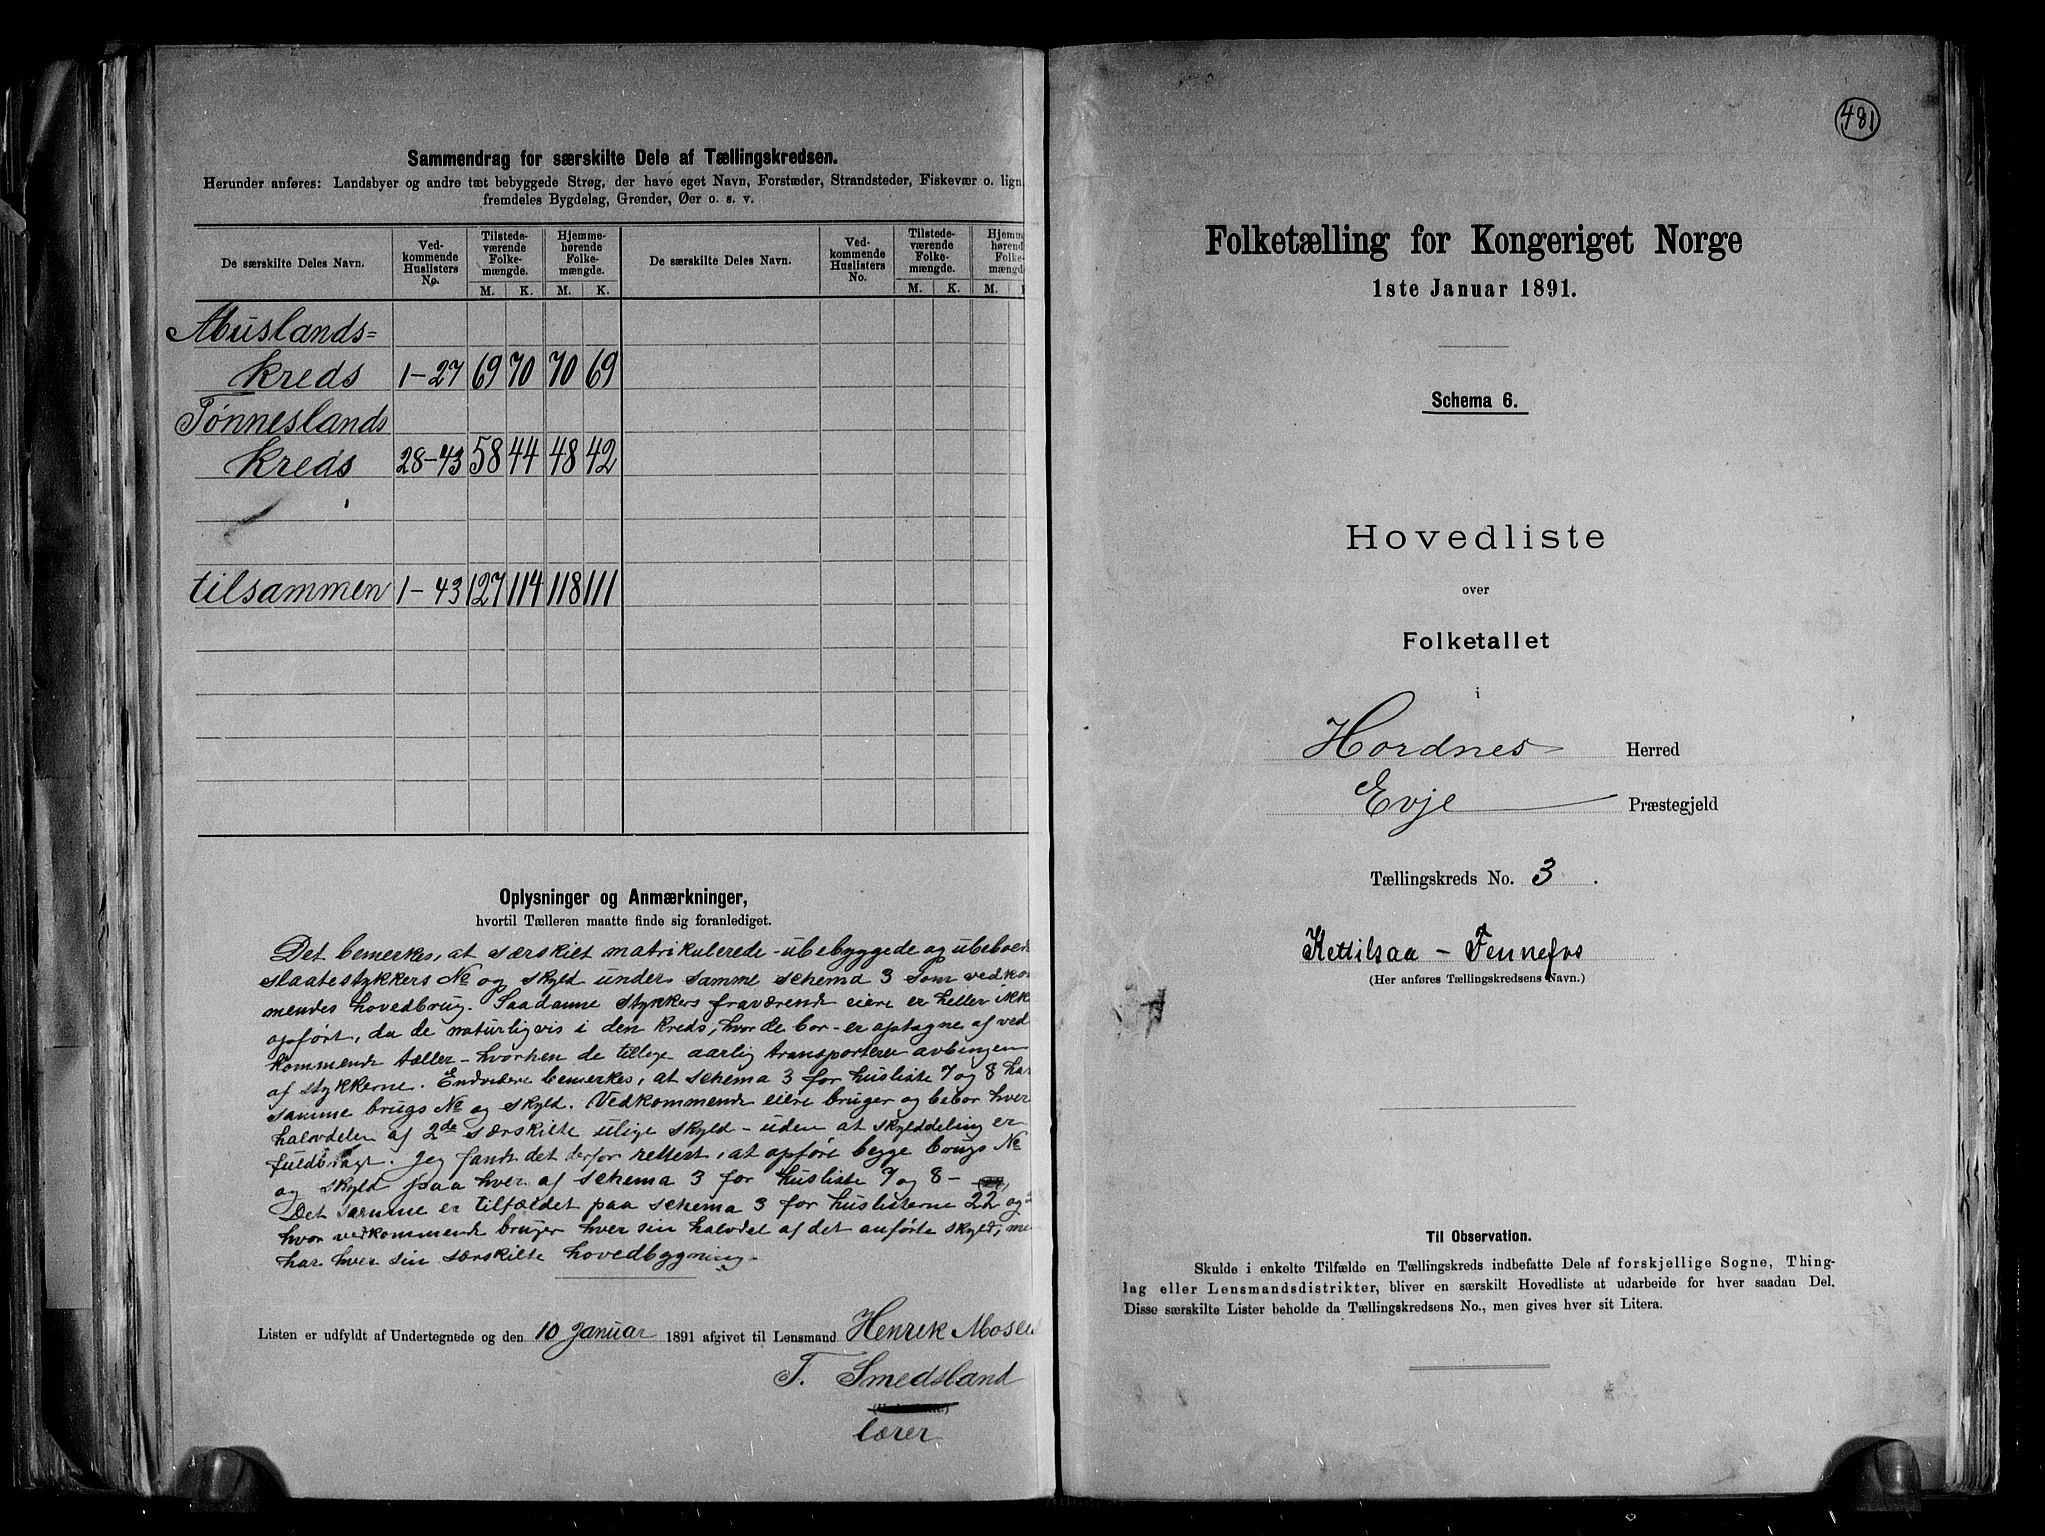 Sammendrag for særskilte Dele af Tællingskredsen.
Herunder anføres: Landsbyer og andre tæt bebyggede Strøg, der have eget Navn, Forstæder, Strandsteder, Fiskevær o. lign.
fremdeles Bygdelag, Grender, Øer o. s. v.
De særskilte Deles Navn. Ved-kommende Huslisters No. Tilstede-værende Folke-mængde. Hjemme-hørende Folke-mængde. De særskilte Deles Navn. Ved-kommende Huslisters No. Tilstede-værende Folke-mængde. Hjemm hørend Folke mængde
M. K. M. K. M. K. M.
Muslands=
kreds 1-27 69 70 70 69
Tønneslands
kreds 28-43 58 44 48 42
tilsammen 1-43 127 114 118 111
Oplysninger og Anmærkninger,
hvortil Tælleren maatte finde sig foranlediget.
Det bemerkes, at særskilt matrikulerede - ubebyggede og ubeboede
slaatestykkers No og skyld under samme schema 3 som vedkom
mendes hovedbrug. Saadanne stykkers fraværende eiere er heller ikke
opført, da de naturligvis i den kreds, hvor de bor - er optagne af ved-
kommende tæller - hvorhen de tillige aarlig transporterer avlingen
af stykkerne. Endvidere bemerkes, at schema 3 for husliste 7 og 8 har
samme brugs No og skyld. Vedkommende eiere bruger og bebor hver
halvdelen af 2de særskilte ulige skyld - uden at skylddeling er
fuldbragt. Jeg fandt det derfor rettest, at opføre begge brugs No
og skyld paa hver af schema 3 for husliste 7 og 8 -
Det samme er tilfældet paa schema 3 for huslisterne 22 og
hvor vedkommende bruger hver sin halvdel af det anførte skyld, men
har hver sin særskilte hovedbygning.
Listen er udfyldt af Undertegnede og den 10 Januar 1891 afgivet til Lensmand Henrik
T. Smedsland
lærer
481
Folketælling for Kongeriget Norge
1ste Januar 1891.
Schema 6.
Hovedliste
over
Folketallet
i
Hordnes Herred
Evje Præstegjeld
Tællingskreds No. 3.
Kettilsaa - Fennefos
(Her anføres Tællingskredsens Navn.)
Til Observation.
Skulde i enkelte Tilfælde en Tællingskreds indbefatte Dele af forskjellige Sogne, Thing-
lag eller Lensmandsdistrikter, bliver en særskilt Hovedliste at udarbeide for hver saadan Del.
Disse særskilte Lister beholde da Tællingskredsens No., men gives hver sit Litera.